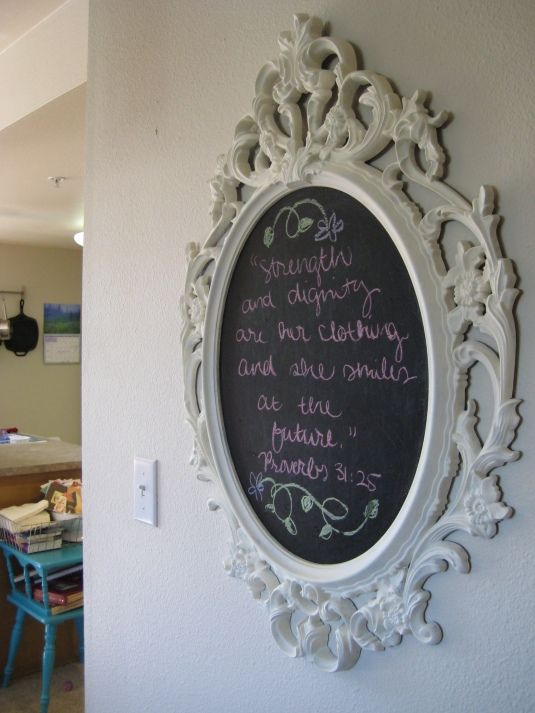 "strength
and dignity
are her clothing
and she smiles
at the
future."
Proverbs 31:25